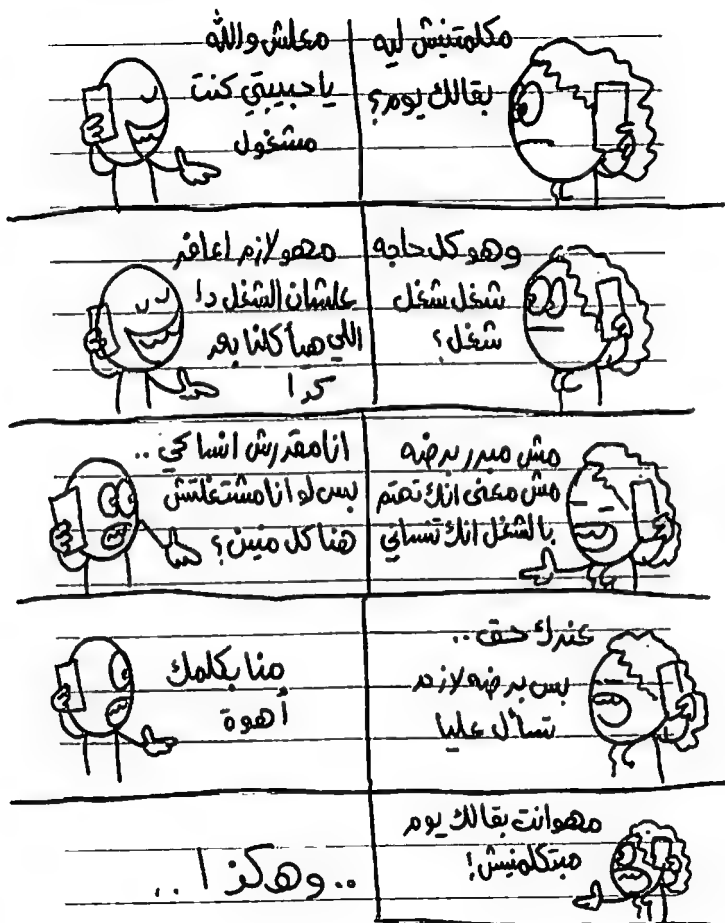 مكلمتنيش ليه
بقالك يوم؟
معلش والله
يا حبيبتي كنت
مشغول
وهو كل حاجه
شغل شغل
شغل؟
مهو لازم اعافر
علشان الشغل دا
اللي هيأكلنا بعد
كدا
مش مبرر برضه
مش معنى انك تهتم
بالشغل انك تنساني
انا مقدرش انساكي ..
بس لو انا مشتغلتش
هناكل منين؟
عندك حق ..
بس برضه لازم
تسأل عليا
منا بكلمك
أهوة
مهو انت بقالك يوم
مبتكلمنيش!
.. وهكذا ..